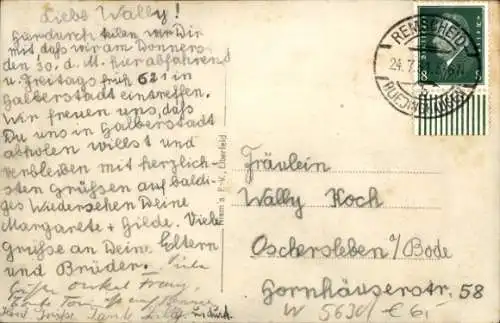 Liebe Wally!
Hierdurch teilen wir Dir
mit daß wir am Donners-
den 30. d. M. hier abfahren
u. Freitags früh 6²¹ in
Halberstadt eintreffen.
Wir freuen uns, daß
Du uns in Halberstadt
abholen willst und
verbleiben mit herzlich-
sten Grüßen auf baldi-
ges Wiedersehen Deine
Margarete + Hilde. Viele
Grüße an Deine Eltern
und Brüder. Viele
Grüße onkel Franz,
Tante
Grüße Tante
REMSCHEID
24.7.
8 8
Fräulein
Wally Koch
Oschersleben a/Bode
Hornhäuserstr. 58
W 5630 € 6,-